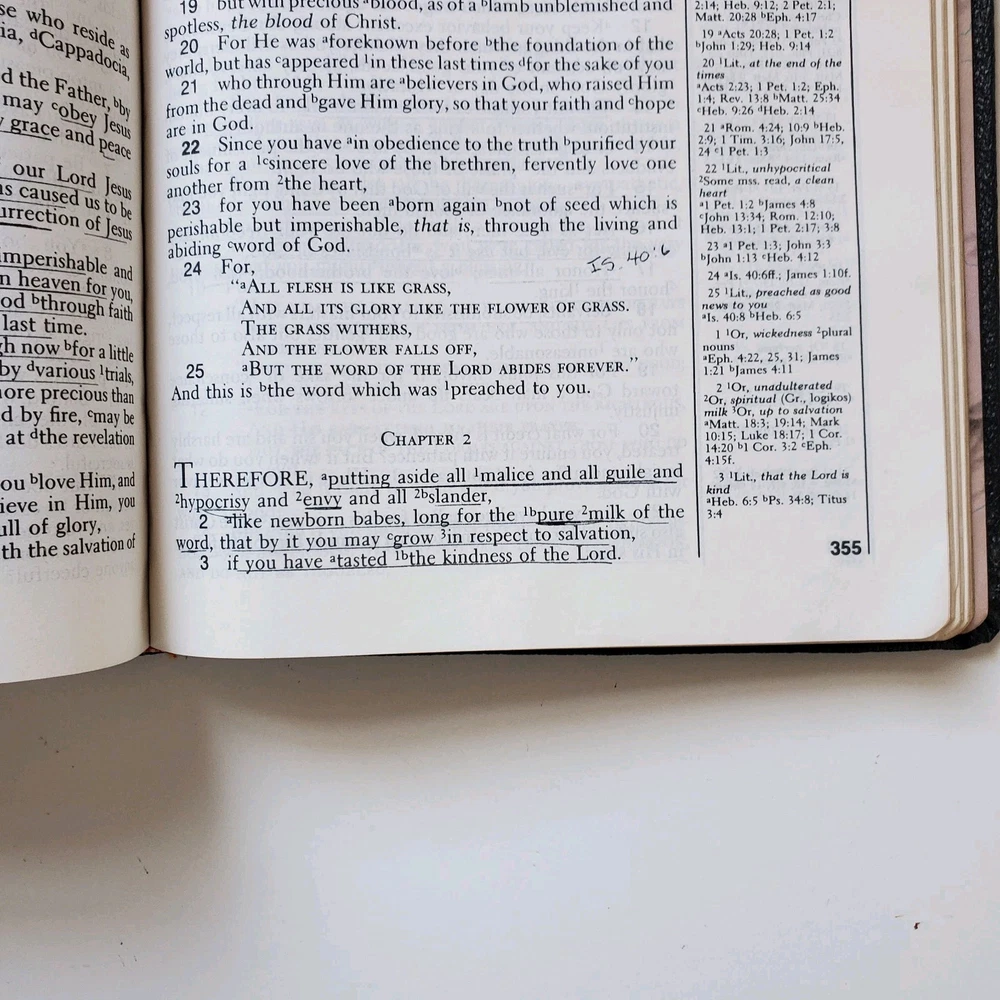 se who reside as
ia, dCappadocia,
d the Father, bby
may cobey Jesus
grace and peace
our Lord Jesus
s caused us to be
urrection of Jesus
imperishable and
n heaven for you,
od bthrough faith
last time.
h now bfor a little
by dvarious 1trials,
ore precious than
d by fire, cmay be
at dthe revelation
ou blove Him, and
ieve in Him, you
ull of glory,
th the salvation of
19 but with precious ablood, as of a blamb unblemished and
spotless, the blood of Christ.
20 For He was aforeknown before bthe foundation of the
world, but has cappeared 1in these last times dfor the sake of you
21 who through Him are abelievers in God, who raised Him
from the dead and bgave Him glory, so that your faith and chope
are in God.
22 Since you have ain obedience to the truth bpurified your
souls for a 1csincere love of the brethren, fervently love one
another from 2the heart,
23 for you have been aborn again bnot of seed which is
perishable but imperishable, that is, through the living and
abiding cword of God.
24 For,
IS. 40:6
“aALL FLESH IS LIKE GRASS,
AND ALL ITS GLORY LIKE THE FLOWER OF GRASS.
THE GRASS WITHERS,
AND THE FLOWER FALLS OFF,
25 aBUT THE WORD OF THE LORD ABIDES FOREVER.”
And this is bthe word which was 1preached to you.
CHAPTER 2
THEREFORE, aputting aside all 1malice and all guile and
2hypocrisy and 2envy and all 2bslander,
2 alike newborn babes, long for the 1bpure 2milk of the
word, that by it you may cgrow 3in respect to salvation,
3 if you have atasted 1bthe kindness of the Lord.
2:14; Heb. 9:12; 2 Pet. 2:1;
Matt. 20:28 bEph. 4:17
19 aActs 20:28; 1 Pet. 1:2
bJohn 1:29; Heb. 9:14
20 1Lit., at the end of the
times
aActs 2:23; 1 Pet. 1:2; Eph.
1:4; Rev. 13:8 bMatt. 25:34
cHeb. 9:26 dHeb. 2:14
21 aRom. 4:24; 10:9 bHeb.
2:9; 1 Tim. 3:16; John 17:5,
24 c1 Pet. 1:3
22 1Lit., unhypocritical
2Some mss. read, a clean
heart
a1 Pet. 1:2 bJames 4:8
cJohn 13:34; Rom. 12:10;
Heb. 13:1; 1 Pet. 2:17; 3:8
23 a1 Pet. 1:3; John 3:3
bJohn 1:13 cHeb. 4:12
24 aIs. 40:6ff.; James 1:10f.
25 1Lit., preached as good
news to you
aIs. 40:8 bHeb. 6:5
1 1Or, wickedness 2plural
nouns
aEph. 4:22, 25, 31; James
1:21 bJames 4:11
2 1Or, unadulterated
2Or, spiritual (Gr., logikos)
milk 3Or, up to salvation
aMatt. 18:3; 19:14; Mark
10:15; Luke 18:17; 1 Cor.
14:20 b1 Cor. 3:2 cEph.
4:15f.
3 1Lit., that the Lord is
kind
aHeb. 6:5 bPs. 34:8; Titus
3:4
355